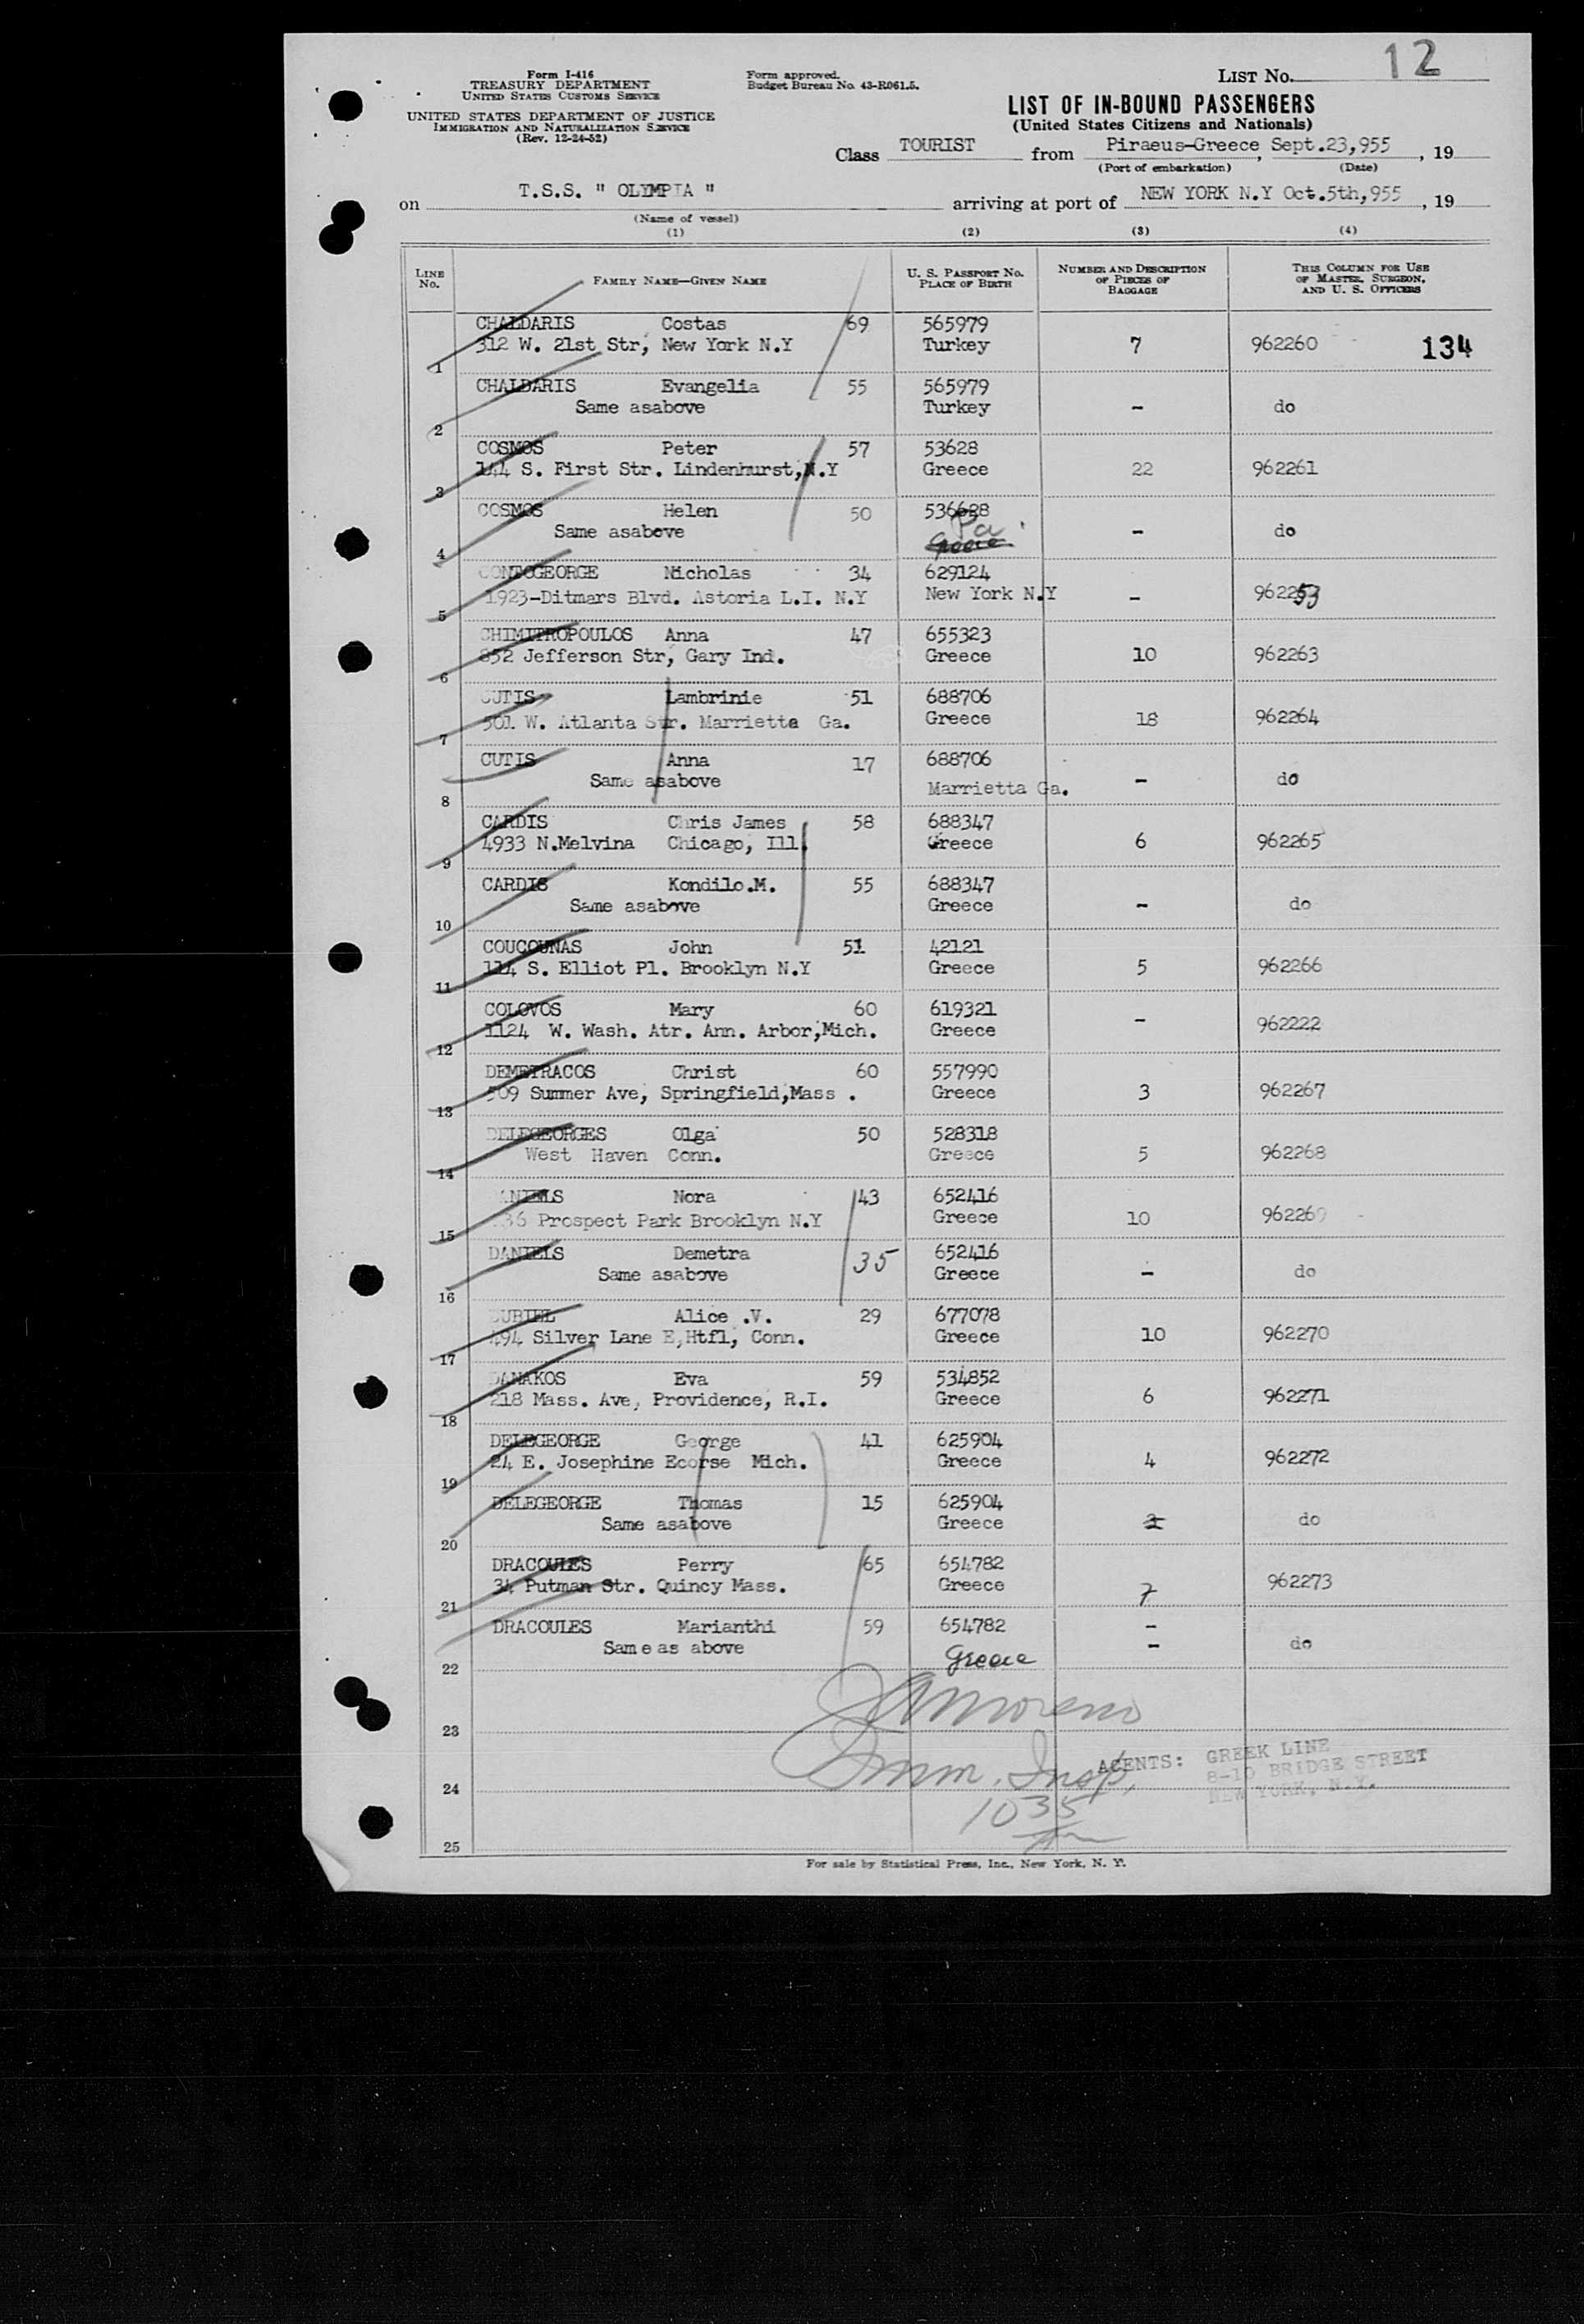 12
Form I-416
TREASURY DEPARTMENT
UNITED STATES CUSTOMS SERVICE
UNITED STATES DEPARTMENT OF JUSTICE
IMMIGRATION AND NATURALIZATION SERVICE
(Rev. 12-24-52)
Form approved.
Budget Bureau No. 43-R061.5.
LIST No.
LIST OF IN-BOUND PASSENGERS
(United States Citizens and Nationals)
Class TOURIST from Piraeus-Greece, Sept.23,955, 19
(Port of embarkation) (Date)
on T.S.S. " OLYMPIA " arriving at port of NEW YORK N.Y Oct.5th,955, 19
(Name of vessel)
(1) (2) (3) (4)
LINE No. FAMILY NAME—GIVEN NAME U. S. PASSPORT NO. PLACE OF BIRTH NUMBER AND DESCRIPTION OF PIECES OF BAGGAGE THIS COLUMN FOR USE OF MASTER, SURGEON, AND U. S. OFFICERS
CHALDARIS Costas 69 565979
312 W. 21st Str, New York N.Y Turkey 7 962260 134
1
CHALDARIS Evangelia 55 565979
Same asabove Turkey - do
2
COSMOS Peter 57 53628
144 S. First Str. Lindenhurst,N.Y Greece 22 962261
3
COSMOS Helen 50 536628
Same asabove Pa. Greece - do
4
CONTOGEORGE Nicholas 34 629124
1923-Ditmars Blvd. Astoria L.I. N.Y New York N.Y - 962253
5
CHIMITROPOULOS Anna 47 655323
852 Jefferson Str, Gary Ind. Greece 10 962263
6
CUTIS Lambrinie 51 688706
501 W. Atlanta Str. Marrietta Ga. Greece 18 962264
7
CUTIS Anna 17 688706
Same asabove Marrietta Ga. - do
8
CARDIS Chris James 58 688347
4933 N.Melvina Chicago, Ill. Greece 6 962265
9
CARDIS Kondilo.M. 55 688347
Same asabove Greece - do
10
COUCOUNAS John 51 42121
114 S. Elliot Pl. Brooklyn N.Y Greece 5 962266
11
COLOVOS Mary 60 619321
1124 W. Wash. Atr. Ann. Arbor,Mich. Greece - 962222
12
DEMETRACOS Christ 60 557990
509 Summer Ave, Springfield,Mass . Greece 3 962267
13
DELEGEORGES Olga 50 528318
West Haven Conn. Greece 5 962268
14
DANIELS Nora 43 652416
36 Prospect Park Brooklyn N.Y Greece 10 962269
15
DANIELS Demetra 35 652416
Same asabove Greece - do
16
DURIEL Alice .V. 29 677078
494 Silver Lane E,Htfl, Conn. Greece 10 962270
17
DANAKOS Eva 59 534852
218 Mass. Ave, Providence, R.I. Greece 6 962271
18
DELEGEORGE George 41 625904
24 E. Josephine Ecorse Mich. Greece 4 962272
19
DELEGEORGE Thomas 15 625904
Same asabove Greece do
20
DRACOULES Perry 65 654782
34 Putman Str. Quincy Mass. Greece 7 962273
21
DRACOULES Marianthi 59 654782 -
Same as above Greece - do
22
23
Moreno
Imm. Insp.
AGENTS: GREEK LINE
8-10 BRIDGE STREET
NEW YORK, N.Y.
24
1035
25
For sale by Statistical Press, Inc., New York, N. Y.